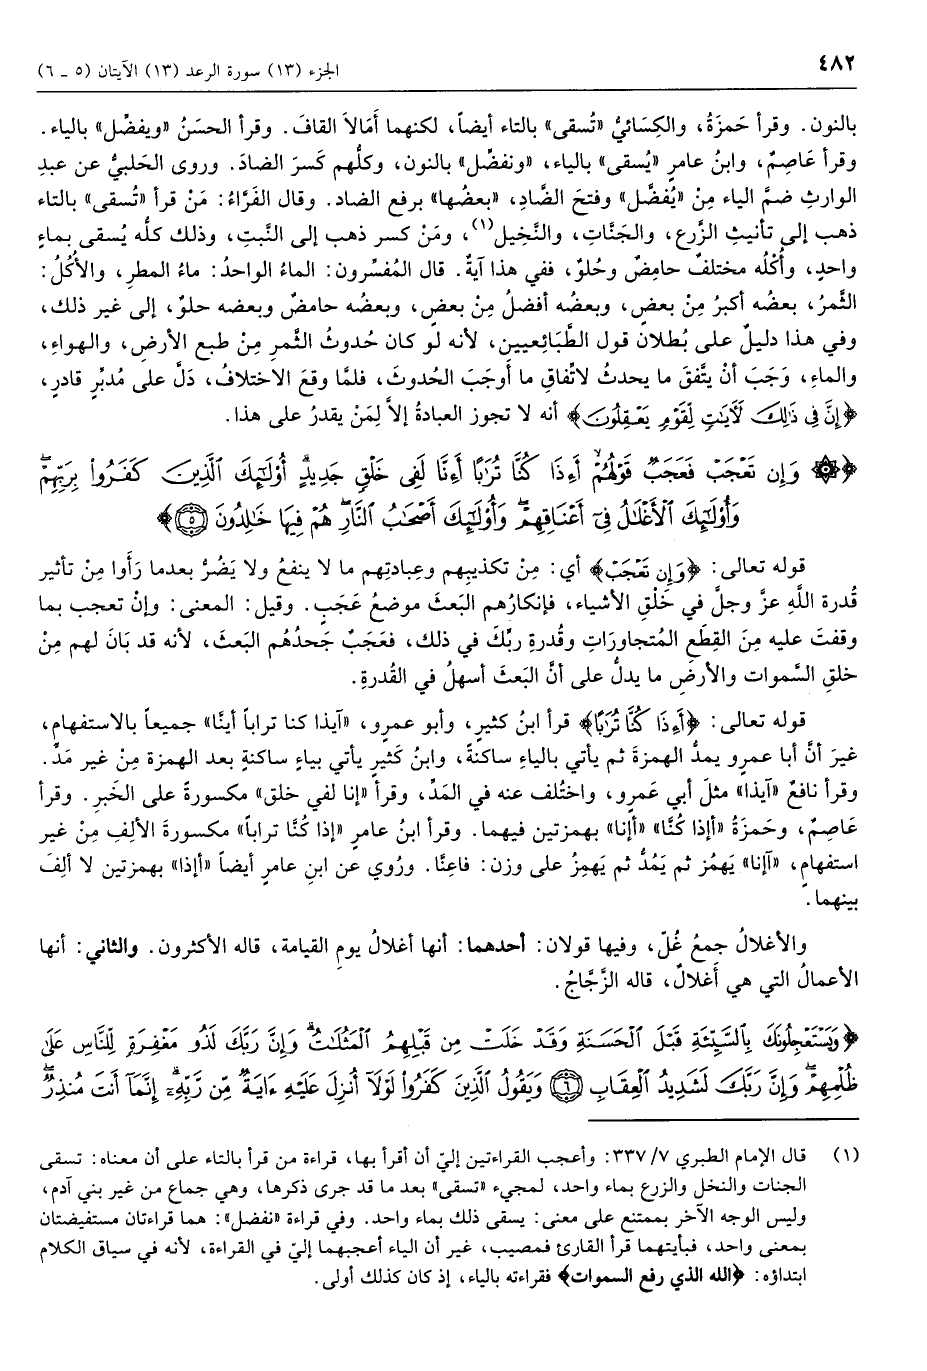 ٤٨٢
الجزء (١٣) سورة الرعد (١٣) الآيتان (٥ ـ ٦)
بالنون. وقرأ حَمزَةُ، والكِسَائيُّ «تُسقى» بالتاء أيضاً، لكنهما أَمَالاَ القافَ. وقرأ الحسَنُ «ويفضِّل» بالياء.
وقرأ عَاصِمٌ، وابنُ عامرٍ «يُسقى» بالياء، «ونفضِّل» بالنون، وكلُّهم كَسرَ الضادَ. وروى الحَلبيُّ عن عبدِ
الوارثِ ضمَّ الياء مِنْ «يُفضَّل» وفتحَ الضَّادِ، «بعضُها» برفع الضاد. وقال الفَرَّاءُ: مَنْ قرأ «تُسقى» بالتاء
ذهب إلى تأنيثِ الزَّرعِ، والجَنَّاتِ، والنَّخِيل(١)، ومَنْ كسر ذهب إلى النَّبتِ، وذلك كلُّه يُسقى بماءٍ
واحدٍ، وأُكْلُه مختلفٌ حامِضٌ وحُلوٌ، ففي هذا آيةٌ. قال المُفسِّرون: الماءُ الواحدُ: ماءُ المطرِ، والأُكُلُ:
الثَّمرُ، بعضُه أكبرُ مِنْ بعضٍ، وبعضُه أفضلُ مِنْ بعضٍ، وبعضُه حامضٌ وبعضه حلوٌ، إلى غير ذلك،
وفي هذا دليلٌ على بُطلانِ قول الطَّبَائِعيين، لأنه لو كان حُدوثُ الثَّمرِ مِنْ طبع الأرضِ، والهواءِ،
والماءِ، وَجَبَ أنْ يتَّفقَ ما يحدثُ لاتِّفاقِ ما أَوجَبَ الحُدوثَ، فلمَّا وقعَ الاختلافُ، دَلَّ على مُدبِّرٍ قادرٍ،
﴿إِنَّ فِى ذَٰلِكَ لَأَيَٰتٍ لِّقَوْمٍ يَعْقِلُونَ﴾ أنه لا تجوز العبادةُ إلاَّ لِمَنْ يقدرُ على هذا.
﴿۞ وَإِن تَعْجَبْ فَعَجَبٌ قَوْلُهُمْ أَءِذَا كُنَّا تُرَٰبًا أَءِنَّا لَفِى خَلْقٍ جَدِيدٍ أُو۟لَٰٓئِكَ ٱلَّذِينَ كَفَرُوا۟ بِرَبِّهِمْ
وَأُو۟لَٰٓئِكَ ٱلْأَغْلَٰلُ فِىٓ أَعْنَاقِهِمْ وَأُو۟لَٰٓئِكَ أَصْحَٰبُ ٱلنَّارِ هُمْ فِيهَا خَٰلِدُونَ ٥﴾
قوله تعالى: ﴿وَإِن تَعْجَبْ﴾ أي: مِنْ تكذيبِهم وعِبادتِهم ما لا ينفعُ ولا يَضُرُّ بعدما رَأَوا مِنْ تأثير
قُدرة اللَّهِ عزَّ وجلَّ في خَلْقِ الأشياء، فإنكارُهم البَعثَ موضعُ عَجَبٍ. وقيل: المعنى: وإنْ تعجب بما
وقفتَ عليه مِنَ القِطَعِ المُتجاوِرَاتِ وقُدرةِ ربِّكَ في ذلك، فعَجَبٌ جَحدُهُم البَعثَ، لأنه قد بَانَ لهم مِنْ
خلقِ السَّموات والأرضِ ما يدلُّ على أنَّ البَعثَ أسهلُ في القُدرةِ.
قوله تعالى: ﴿أَءِذَا كُنَّا تُرَٰبًا﴾ قرأ ابنُ كثيرٍ، وأبو عمرٍو، «آيذا كنا تراباً أينَّا» جميعاً بالاستفهام،
غيرَ أنَّ أبا عمرٍو يمدُّ الهمزةَ ثم يأتي بالياءِ ساكنةً، وابنُ كَثيرٍ يأتي بياءٍ ساكنةٍ بعد الهمزة مِنْ غير مَدٍّ.
وقرأ نافعٌ «آيذا» مثلَ أبي عَمرٍو، واختُلف عنه في المَدِّ، وقرأ «إنا لفي خلق» مكسورةً على الخَبرِ. وقرأ
عَاصِمٌ، وحَمزَةُ «أإذا كُنَّا» «أإنا» بهمزتين فيهما. وقرأ ابنُ عامرٍ «إذا كُنَّا تراباً» مكسورةَ الألِفِ مِنْ غير
استفهامٍ، «آإنا» يَهمُز ثم يَمُدُّ ثم يَهمِزُ على وزن: فاعِنَّا. ورُوي عن ابنِ عامرٍ أيضاً «أإذا» بهمزتين لا ألِفَ
بينهما.
والأغلالُ جمعُ غُلّ، وفيها قولان: أحدهما: أنها أغلالُ يومِ القيامة، قاله الأكثرون. والثاني: أنها
الأعمالُ التي هي أَغلالٌ، قاله الزَّجَّاجُ.
﴿وَيَسْتَعْجِلُونَكَ بِٱلسَّيِّئَةِ قَبْلَ ٱلْحَسَنَةِ وَقَدْ خَلَتْ مِن قَبْلِهِمُ ٱلْمَثُلَٰتُ وَإِنَّ رَبَّكَ لَذُو مَغْفِرَةٍ لِّلنَّاسِ عَلَىٰ
ظُلْمِهِمْ وَإِنَّ رَبَّكَ لَشَدِيدُ ٱلْعِقَابِ ٦ وَيَقُولُ ٱلَّذِينَ كَفَرُوا۟ لَوْلَآ أُنزِلَ عَلَيْهِ ءَايَةٌ مِّن رَّبِّهِۦٓ إِنَّمَآ أَنتَ مُنذِرٌ
(١) قال الإمام الطبري ٧/ ٣٣٧: وأعجب القراءتين إليّ أن أقرأ بها، قراءة من قرأ بالتاء على أن معناه: تسقى
الجنات والنخل والزرع بماء واحد، لمجيء «تسقى» بعد ما قد جرى ذكرها، وهي جماع من غير بني آدم،
وليس الوجه الآخر بممتنع على معنى: يسقى ذلك بماء واحد. وفي قراءة «نفضل»: هما قراءتان مستفيضتان
بمعنى واحد، فبأيتهما قرأ القارئ فمصيب، غير أن الياء أعجبهما إليّ في القراءة، لأنه في سياق الكلام
ابتداؤه: ﴿الله الذي رفع السموات﴾ فقراءته بالياء، إذ كان كذلك أولى.